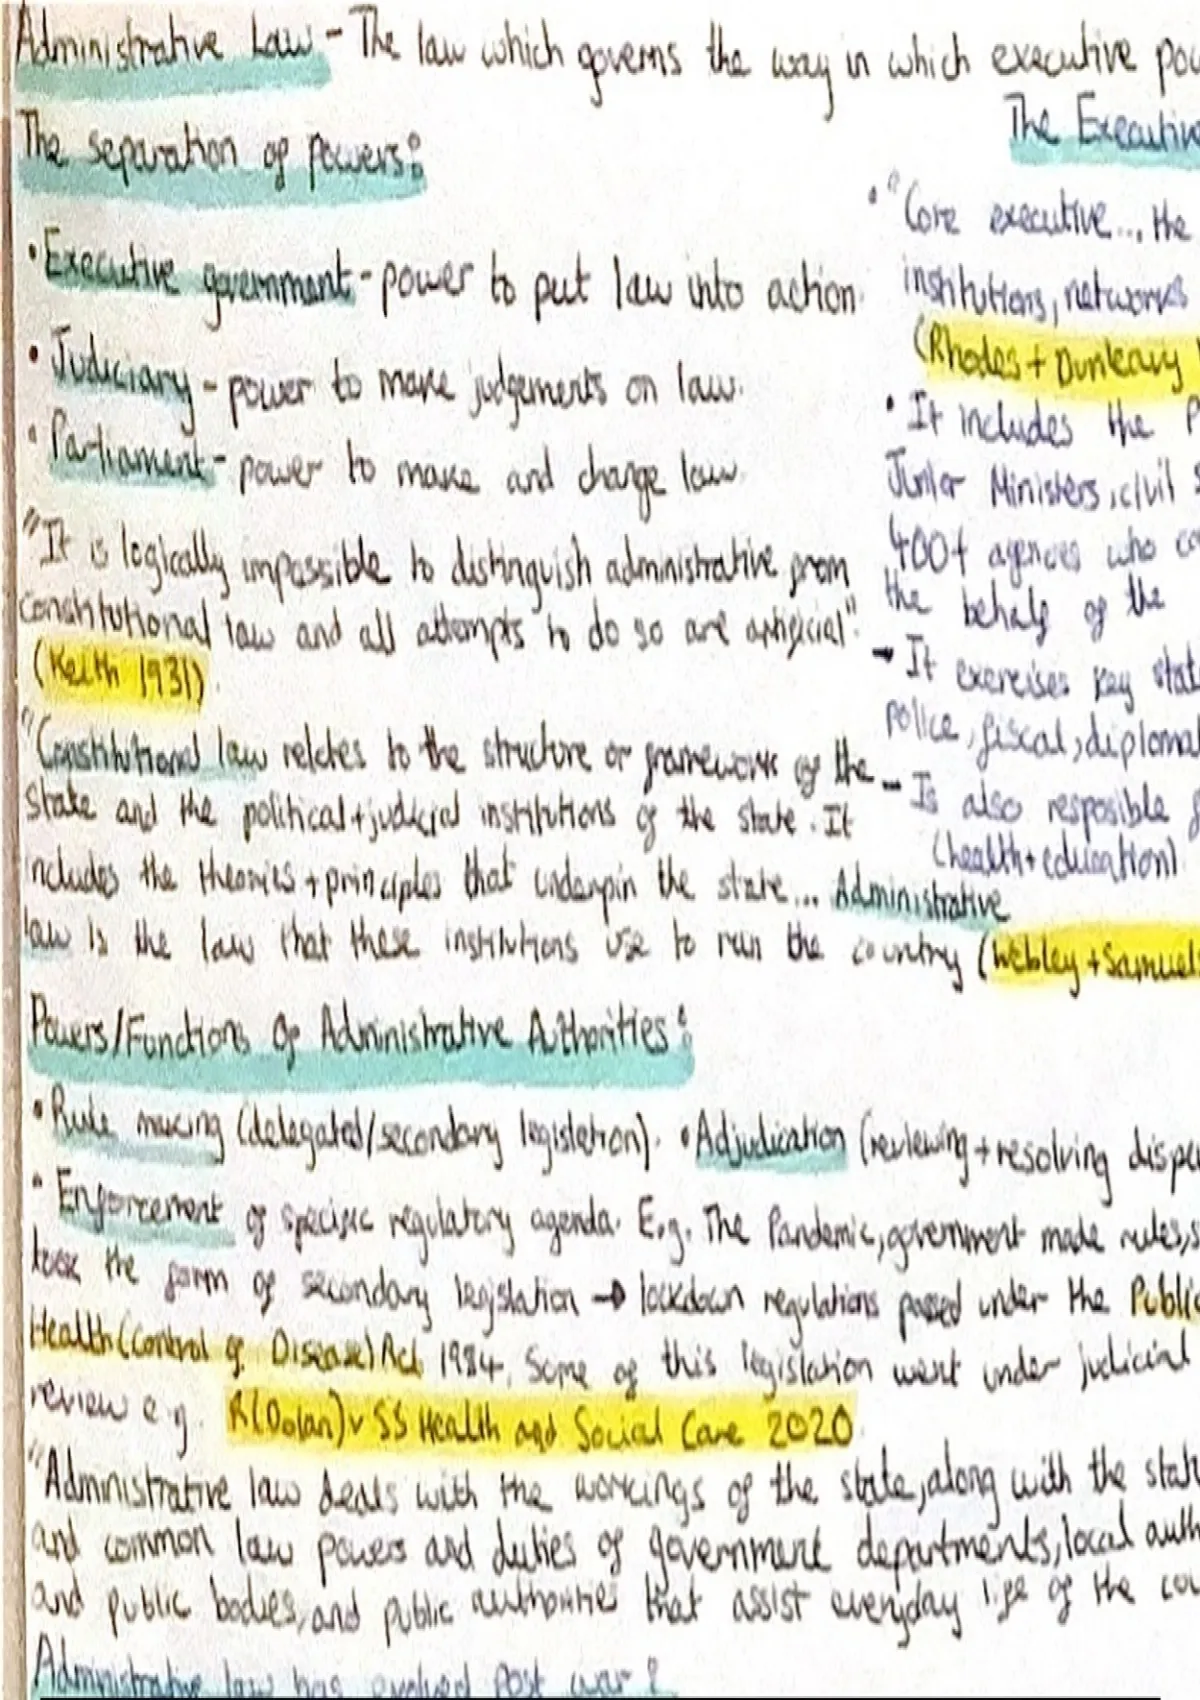 Administrative Law - The law which governs the way in which executive pow
The separation of powers:
• Executive government - power to put law into action.
• Judiciary - power to make judgements on law.
• Parliament - power to make and change law.
"It is logically impossible to distinguish administrative from
constitutional law and all attempts to do so are artificial".
(Keith 1931)
"Constitutional law relates to the structure or framework of the
state and the political + judicial institutions of the state. It
includes the theories + principles that underpin the state... Administrative
law is the law that these institutions use to run the country (Webley + Samuels
The Executive
• "Core executive... the
institutions, networks
(Rhodes + Dunleavy
• It includes the P
Junior Ministers, civil s
400+ agencies who co
the behalf of the
- It exercises key stat
police, fiscal, diplomat
- Is also resposible f
(health + education)
Powers/Functions of Administrative Authorities:
• Rule making (delegated/secondary legislation). • Adjudication (reviewing + resolving dispu
• Enforcement of specific regulatory agenda. E.g. The Pandemic, government made rules, s
took the form of secondary legislation → lockdown regulations passed under the Public
Health (Control of Disease) Act 1984. Some of this legislation went under judicial
review e.g. R(Dolan) v SS Health and Social Care 2020
"Administrative law deals with the workings of the state, along with the statu
and common law powers and duties of government departments, local auth
and public bodies, and public authorities that assist everyday life of the cou
Administrative law has evolved post war: